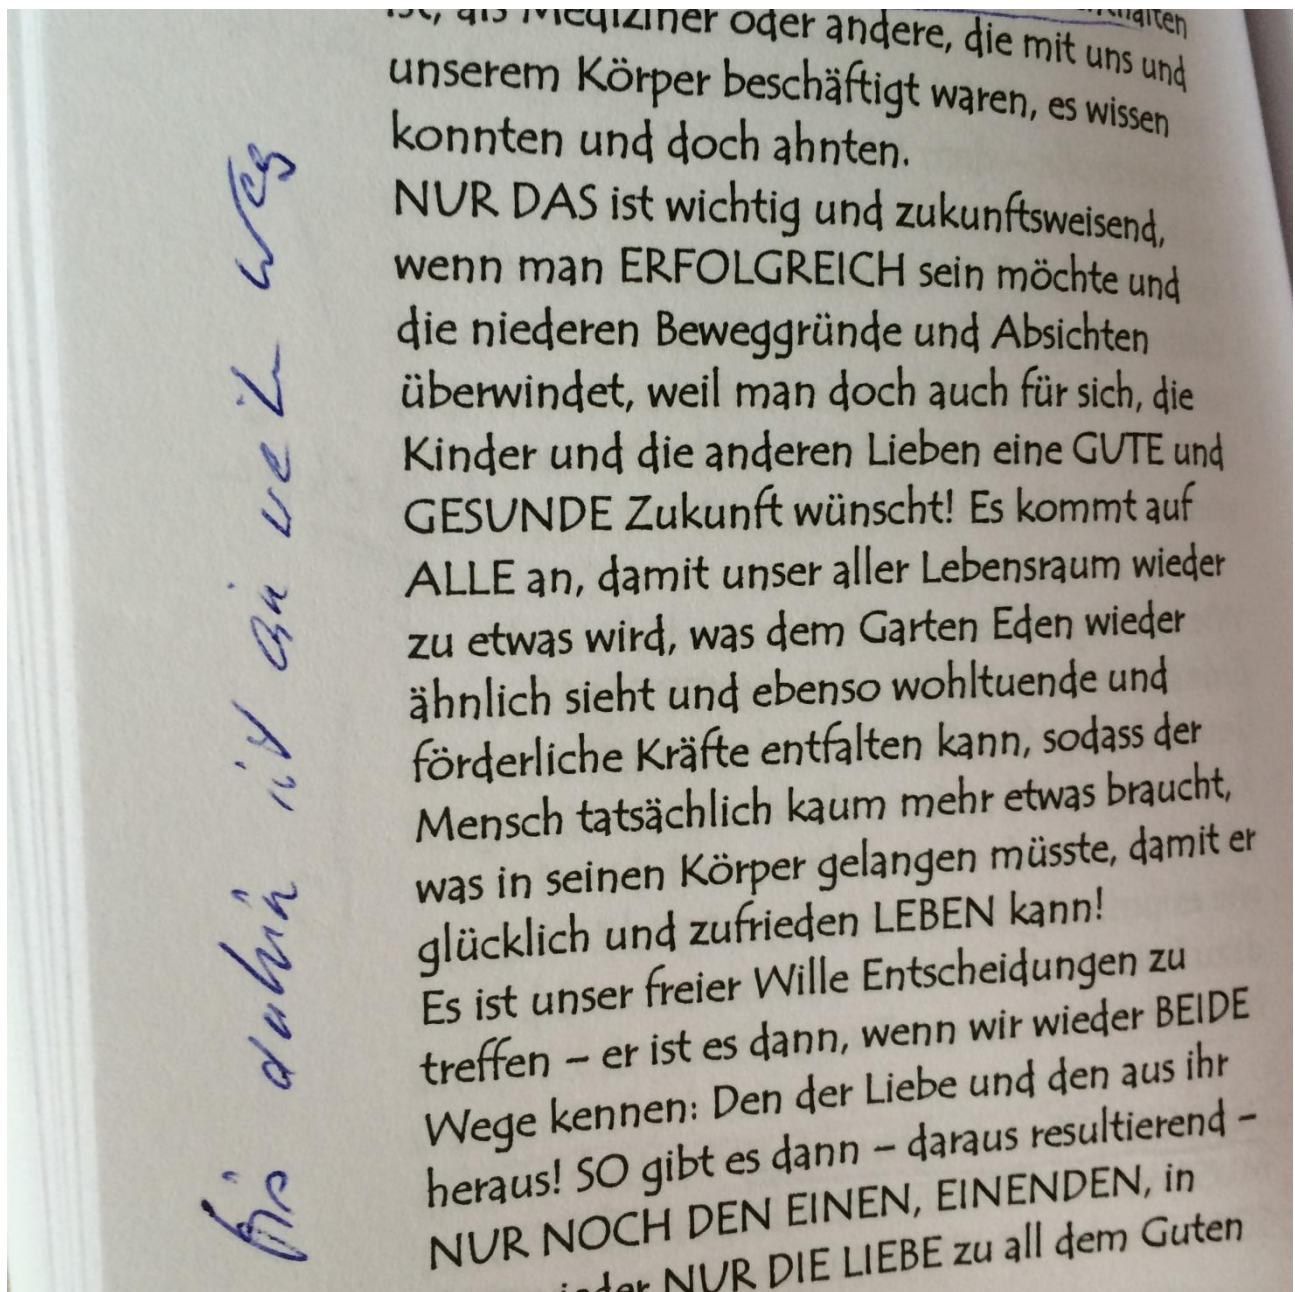 ist, als Mediziner oder andere, die mit uns und
unserem Körper beschäftigt waren, es wissen
konnten und doch ahnten.
NUR DAS ist wichtig und zukunftsweisend,
wenn man ERFOLGREICH sein möchte und
die niederen Beweggründe und Absichten
überwindet, weil man doch auch für sich, die
Kinder und die anderen Lieben eine GUTE und
GESUNDE Zukunft wünscht! Es kommt auf
ALLE an, damit unser aller Lebensraum wieder
zu etwas wird, was dem Garten Eden wieder
ähnlich sieht und ebenso wohltuende und
förderliche Kräfte entfalten kann, sodass der
Mensch tatsächlich kaum mehr etwas braucht,
was in seinen Körper gelangen müsste, damit er
glücklich und zufrieden LEBEN kann!
Es ist unser freier Wille Entscheidungen zu
treffen – er ist es dann, wenn wir wieder BEIDE
Wege kennen: Den der Liebe und den aus ihr
heraus! SO gibt es dann – daraus resultierend –
NUR NOCH DEN EINEN, EINENDEN, in
NUR DIE LIEBE zu all dem Guten
Bis dahin ist ein weiter Weg